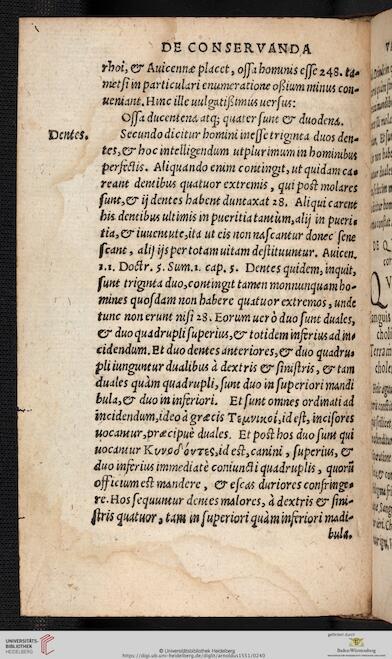 DE CONSERVANDA
rhoi, & Auicennæ placet, ossa hominis esse 248. ta-
metsi in particulari enumeratione ossium minus con-
ueniant. Hinc ille uulgatissimus uersus:
Ossa ducentena atq; quater sunt & duodena.
Dentes.
Secundo dicitur homini inesse triginta duos den-
tes, & hoc intelligendum ut plurimum in hominibus
perfectis. Aliquando enim contingit, ut quidam ca-
reant dentibus quatuor extremis, qui post molares
sunt, & ij dentes habent duntaxat 28. Aliqui carent
his dentibus ultimis in pueritia tantum, alij in pueri-
tia, & iuuentute, ita ut eis non nascantur donec sene
scant, alij ijs per totam uitam destituuntur. Auicen.
1.1. Doctr. 5. Sum. 1. cap. 5. Dentes quidem, inquit,
sunt triginta duo, contingit tamen nonnunquam ho-
mines quosdam non habere quatuor extremos, unde
tunc non erunt nisi 28. Eorum uerò duo sunt duales,
& duo quadrupli superius, & totidem inferius ad in-
cidendum. Et duo dentes anteriores, & duo quadru-
pli iunguntur dualibus à dextris & sinistris, & tam
duales quàm quadrupli, sunt duo in superiori mandi
bula, & duo in inferiori. Et sunt omnes ordinati ad
incidendum, ideo à græcis Τεμνικοί, id est, incisores
uocantur, præcipuè duales. Et post hos duo sunt qui
uocantur Κυνοδόντες, id est, canini, superius, &
duo inferius immediatè coniuncti quadruplis, quorũ
officium est mandere, & escas duriores confringe-
re. Hos sequuntur dentes maiores, à dextris & sini-
stris quatuor, tam in superiori quàm inferiori madi-
bula.
UNIVERSITÄTS-
BIBLIOTHEK
HEIDELBERG
© Universitätsbibliothek Heidelberg
https://digi.ub.uni-heidelberg.de/diglit/arnoldus1551/0240
gefördert durch
Baden-Württemberg